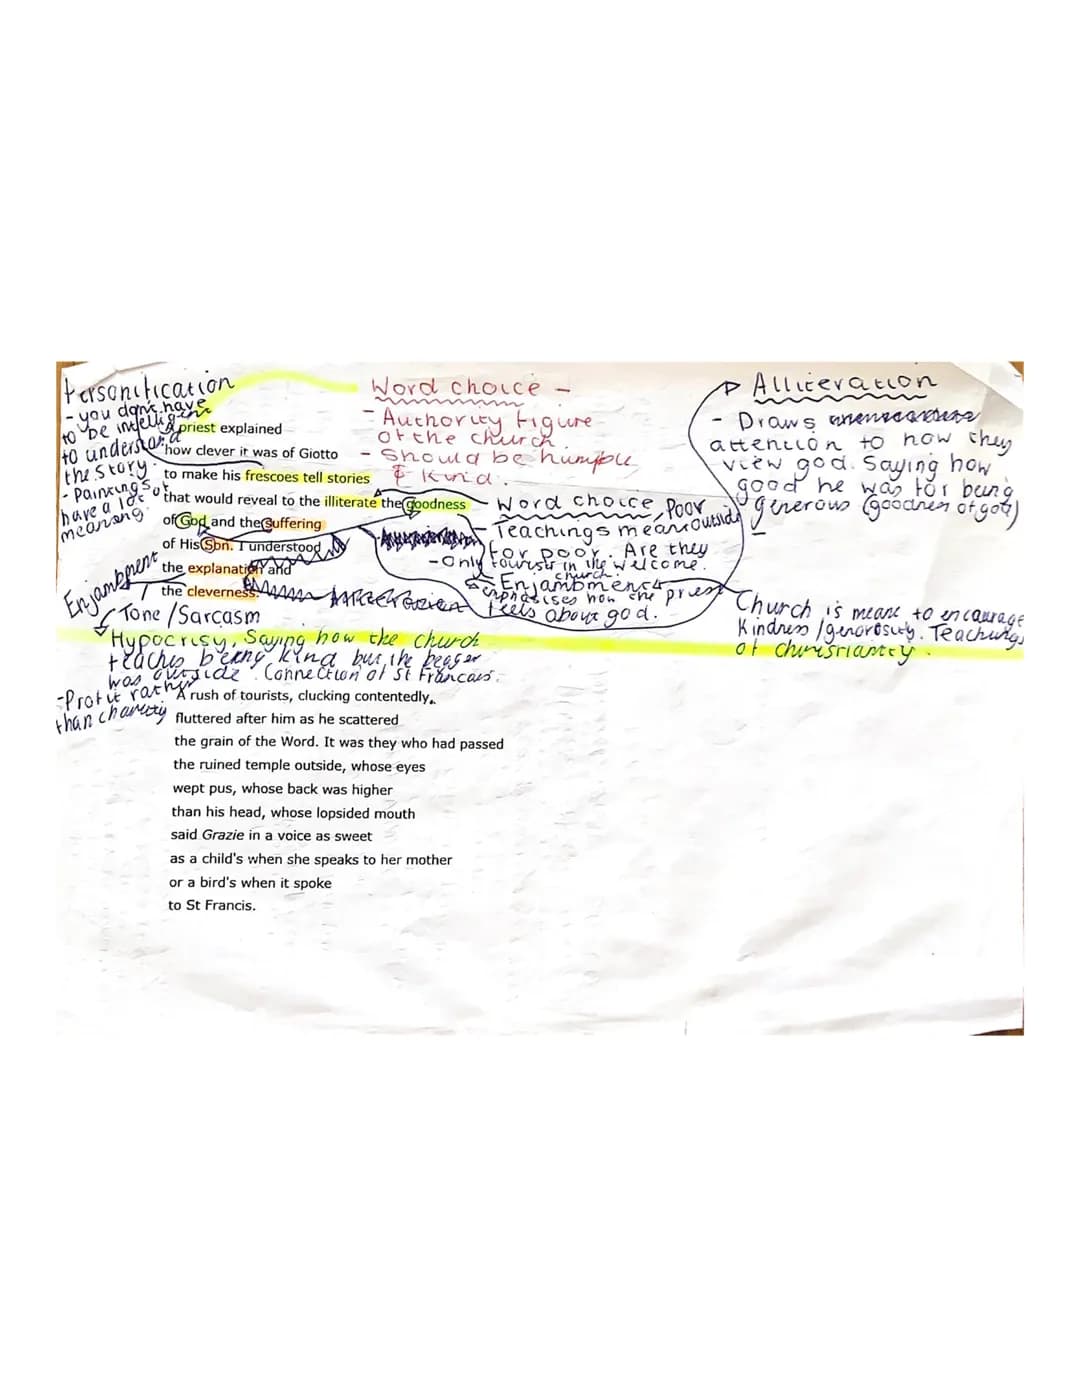 Personification
- you dont have
to be intelligent
to understand
the story.
- Paintings
have a lot of
meaning.
Word choice -
- Authority figure
of the church.
- Should be humble
& Kind.
Alliteration
- Draws
attention to how they
view god. Saying how
good he was for being
generous (goodness of god)
A priest explained
how clever it was of Giotto
to make his frescoes tell stories
that would reveal to the illiterate the goodness
of God and the suffering
of His Son. I understood
the explanation and
the cleverness.
Word choice, Poor outside
- Teachings meant
for poor. Are they
welcome.
- Only tourists in the church.
Enjambment
emphasises how the priest
feels about god.
Church is meant to encourage
Kindness / generosity. Teachings
of chirisrianity.
Enjambment
Tone / Sarcasm
Hypocrisy. Saying how the church
teaches being kind but the beggar
was outside. Connection of St Francais.
- Profit rather
than charity
A rush of tourists, clucking contentedly,
fluttered after him as he scattered
the grain of the Word. It was they who had passed
the ruined temple outside, whose eyes
wept pus, whose back was higher
than his head, whose lopsided mouth
said Grazie in a voice as sweet
as a child's when she speaks to her mother
or a bird's when it spoke
to St Francis.